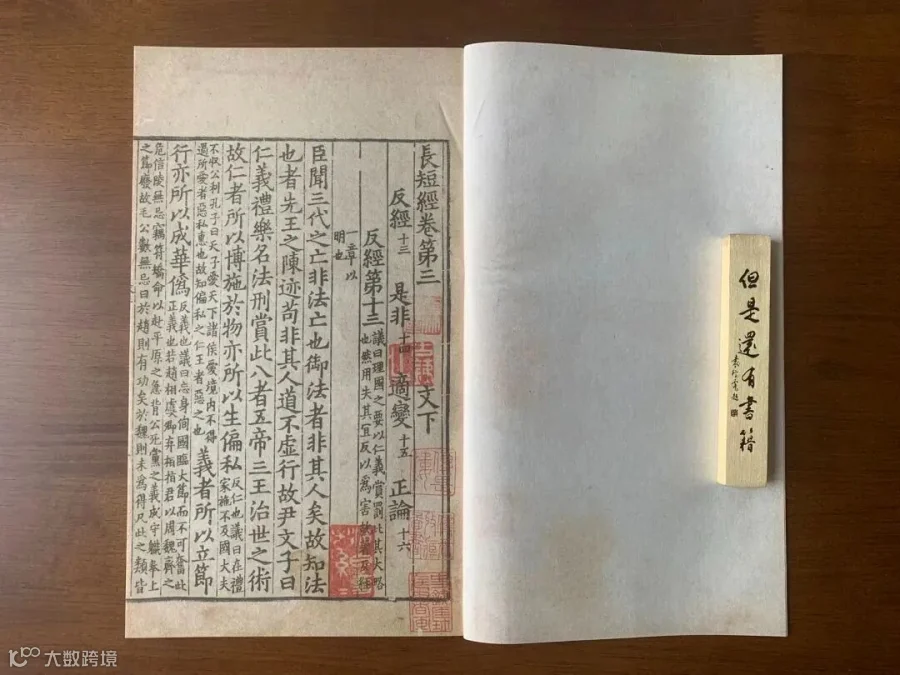 長短經卷第三 文下
反經十三 是非十四 適變十五 正論十六
反經第十三
議曰理國之要以仁義賞罰此其大略
也然用失其宜反以為害故著反經
一章以
明也
臣聞三代之亡非法亡也御法者非其人矣故知法
也者先王之陳迹苟非其人道不虛行故尹文子曰
仁義禮樂名法刑賞此八者五帝三王治世之術
故仁者所以博施於物亦所以生偏私
反仁也議曰在禮
家施不及國大夫
不收公利孔子曰天子愛天下諸侯愛境內不得
過所愛者惡私惠也故知偏私之仁王者惡之也
義者所以立節
行亦所以成華僞
反義也議曰忘身徇國臨大節而不可奪此
正義也若趙相虞卿弃相捐君以周魏齊之
危信陵無忌竊符矯命以赴平原之急背公死黨之義成守職奉上
之節廢故毛公數無忌曰於趙則有功矣於魏則未爲得凡此之類皆
但是還有書籍
大数跨境